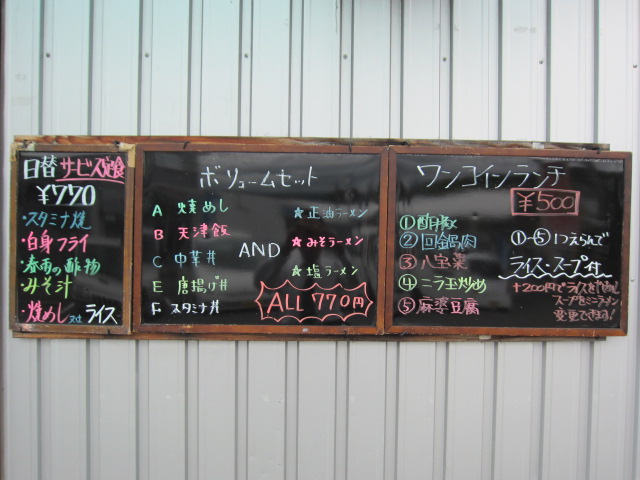 日替サービス定食
¥770
・スタミナ焼
・白身フライ
・春雨の酢物
・みそ汁
・焼めし又はライス
ボリュームセット
A 焼めし
B 天津飯
C 中華丼
E 唐揚げ丼
F スタミナ丼
AND
☆正油ラーメン
☆みそラーメン
☆塩ラーメン
ALL 770円
ワンコインランチ
¥500
①酢豚
②回鍋肉
③八宝菜
④ニラ玉炒め
⑤麻婆豆腐
①〜⑤1つえらんで
ライス・スープ付
+200円でライスをやめし
スープをミニラーメン
変更できます!